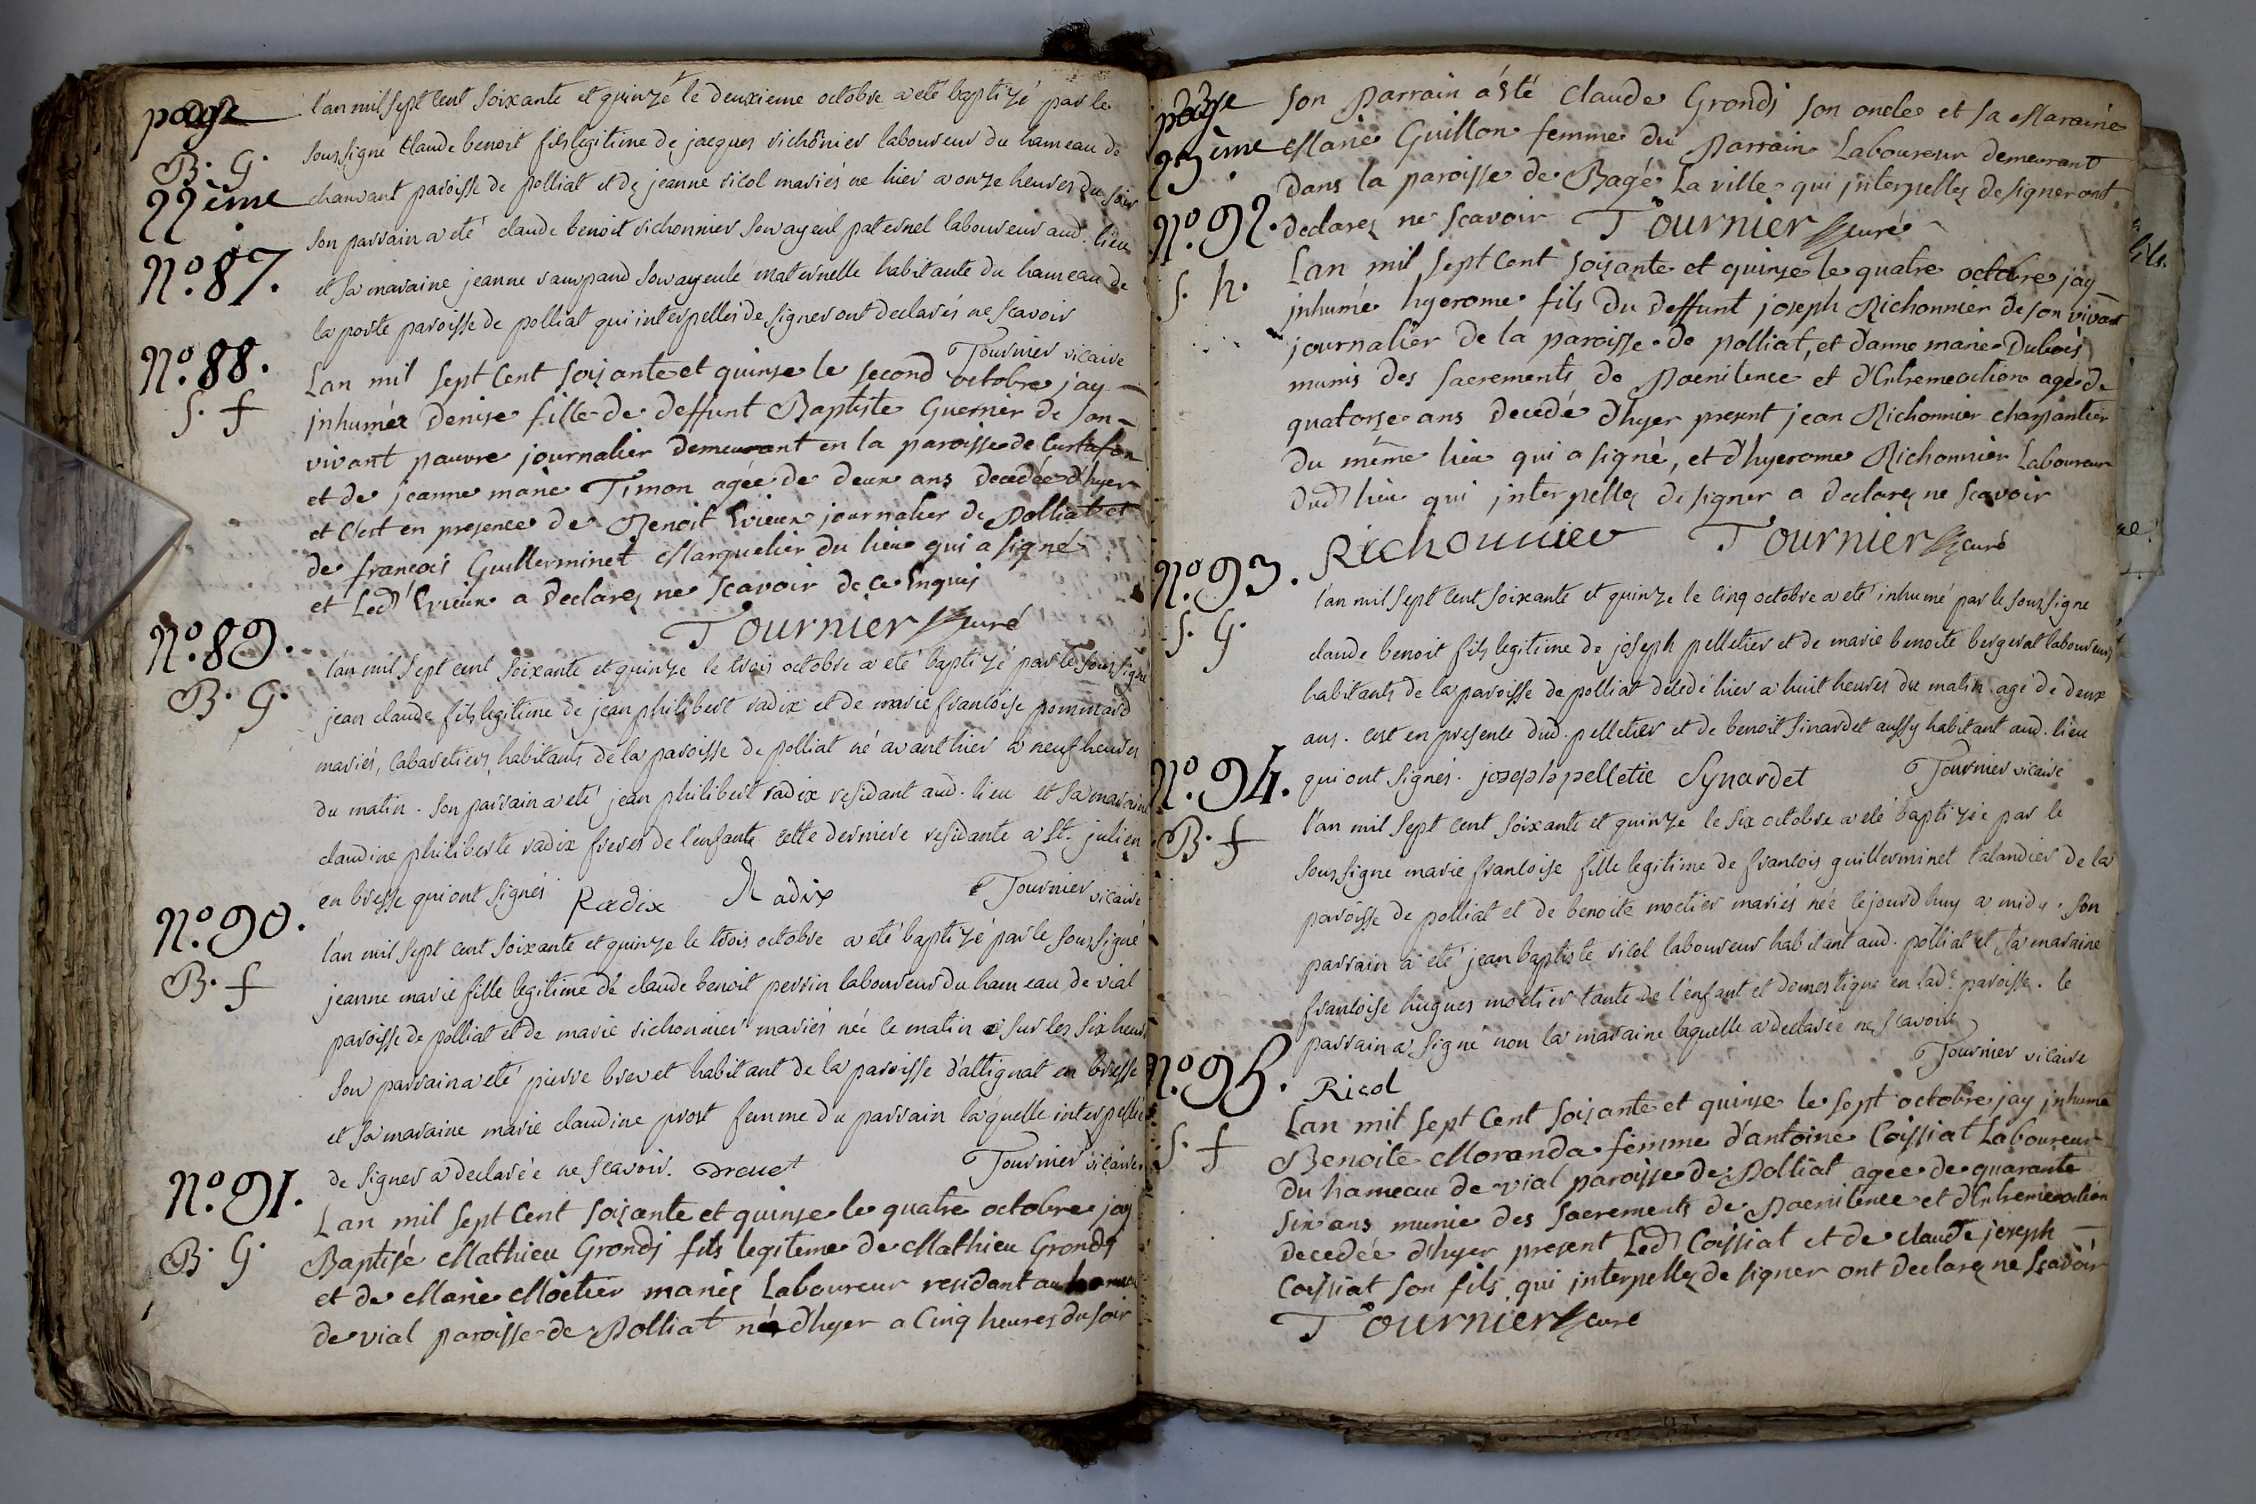 page
B. G.
22ème
N.° 87.
l'an mil sept cent soixante et quinze le deuxieme octobre a eté baptizé par le
soussigné claude benoit fils legitime de jacques richonnier laboureur du hameau de
chanvant paroisse de polliat et de jeanne ricol mariés ne hier a onze heures du soir
son parrain a eté claude benoit richonnier son ayeul paternel laboureur aud. lieu
et sa maraine jeanne raupand son ayeule maternelle habitante du hameau de
la poste paroisse de polliat qui interpellés de signer ont declarés ne scavoir
Tournier vicaire
N.° 88.
S. f
Lan mil sept Cent soixante et quinse le second octobre jay
jnhumée Denise fille de deffunt Baptiste Guernier de son
vivant pauvre journalier demeurant en la paroisse de Curtafon
et de jeanne marie Timon agée de deux ans decedée d'hyer
et C'est en presence de Benoit Evieux journalier de Polliat et
de francois Guillerminet Marguelier du lieu qui a signé
et Led. Evieux a declarez ne scavoir de ce Enquis
Tournier curé
N.° 89.
B. G.
l'an mil sept cent soixante et quinze le trois octobre a eté baptizé par le soussigné
jean claude fils legitime de jean philibert radix et de marie francoise pommard
mariés, cabaretiers, habitants de la paroisse de polliat né avanthier a neuf heures
du matin. son parrain a eté jean philibert radix residant aud. lieu et sa maraine
claudine philiberte radix freres de l'enfant cette derniere residante a St. julien
en bresse qui ont signés Radix Radix Tournier vicaire
N.° 90.
B. f
l'an mil sept cent soixante et quinze le trois octobre a eté baptizé par le soussigné
jeanne marie fille legitime de claude benoit perrin laboureur du hameau de vial
paroisse de polliat et de marie richonnier mariés née ce matin sur les six heures
son parrain a eté pierre brevet habitant de la paroisse d'attignat en bresse
et sa maraine marie claudine prost femme du parrain laquelle interpellée
de signer a declarée ne scavoir. Drevet Tournier vicaire
N.° 91.
B. G.
Lan mil sept Cent soixante et quinse le quatre octobre jay
Baptisé Mathieu Grondj fils legiteme de Mathieu Grondj
et de Marie Moëtier mariez Laboureur residant au hameau
de vial paroisse de Polliat né d'hyer a Cinq heures du soir
page
23ème
son Parrain a esté Claude Grondj son oncle et sa Maraine
Marie Guillon femme du Parrain Laboureur demeurant
dans la paroisse de Bagé La ville qui jnterpellez de signer ont
declarez ne scavoir Tournier curé
N.° 92.
S. h.
Lan mil sept Cent soixante et quinse le quatre octobre jay
jnhumé hyerome fils du deffunt joseph Richonnier de son vivant
journalier de la paroisse de polliat, et d'anne marie Dubois
munis des sacrements de Poenitence et d'Extremeoction agé de
quatorse ans decedé d'hyer present jean Richonnier charpantier
du même lieu qui a signé, et d'hyerome Richonnier Laboureur
dud. lieu qui jnterpellez de signer a declarez ne scavoir
Richonnier Tournier curé
N.° 93.
S. G.
l'an mil sept cent soixante et quinze le cinq octobre a eté inhumé par le soussigne
claude benoit fils legitime de joseph pelletier et de marie benoite bergerat laboureurs
habitants de la paroisse de polliat decedé hier a huit heures du matin agé de deux
ans. cest en presence dud. pelletier et de benoit sinardet aussy habitant aud. lieu
qui ont signés. joseph pelletie Synardet Tournier vicaire
N.° 94.
B. f
l'an mil sept cent soixante et quinze le six octobre a eté baptizée par le
soussigne marie francoise fille legitime de francois guillerminet talandier de la
paroisse de polliat et de benoite moctier mariés née cejourdhuy a midy. son
parrain a eté jean baptiste ricol laboureur habitant aud. polliat et sa maraine
francoise hugues moctier tante de l'enfant et domestique en lad. paroisse. le
parrain a signé non la maraine laquelle a declarée ne scavoir
Ricol Tournier vicaire
N.° 95.
S. f
Lan mil sept Cent soixante et quinse le sept octobre jay jnhumé
Benoite Moranda femme d'antoine Coissiat Laboureur
du hameau de vial paroisse de Polliat agée de quarante
six ans munie des sacrements de Poenitence et d'Extremeoction
decedée d'hyer present Led. Coissiat et de claude joseph
Coissiat son fils qui jnterpellez de signer ont declarez ne scavoir
Tournier curé